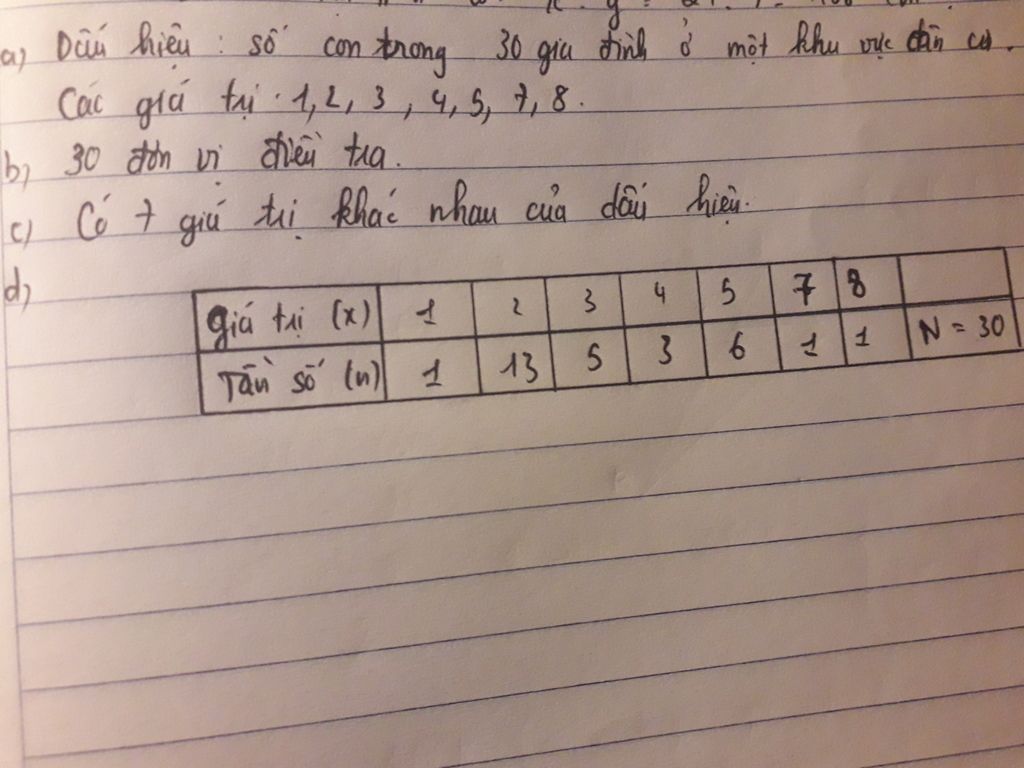 a) Dấu hiệu : số con trong 30 gia đình ở một khu vực dân cư.
Các giá trị : 1, 2, 3, 4, 5, 7, 8.
b) 30 đơn vị điều tra.
c) Có 7 giá trị khác nhau của dấu hiệu.
d)
giá trị (x) 1 2 3 4 5 7 8
Tần số (n) 1 13 5 3 6 1 1 N = 30